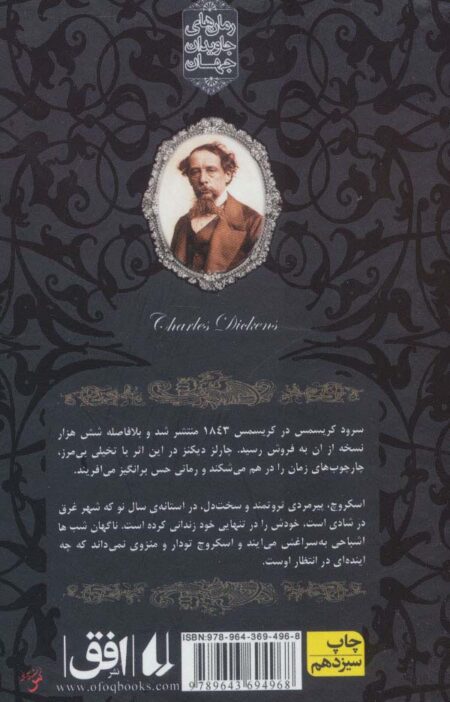 رمان‌های
جاویدان
جهان
Charles Dickens
سرود کریسمس در کریسمس ۱۸۴۳ منتشر شد و بلافاصله شش هزار
نسخه از آن به فروش رسید. چارلز دیکنز در این اثر با تخیلی بی‌مرز،
چارچوب‌های زمان را در هم می‌شکند و رمانی حس برانگیز می‌آفریند.
اسکروچ، پیرمردی ثروتمند و سخت‌دل، در آستانه‌ی سال نو که شهر غرق
در شادی است، خودش را در تنهایی خود زندانی کرده است. ناگهان شب ها
اشباحی به‌سراغش می‌آیند و اسکروچ تودار و منزوی نمی‌داند که چه
آینده‌ای در انتظار اوست.
ISBN: 978-964-369-496-8
9 789643 694968
چاپ
سیزدهم
نشر افق
www.ofoqbooks.com